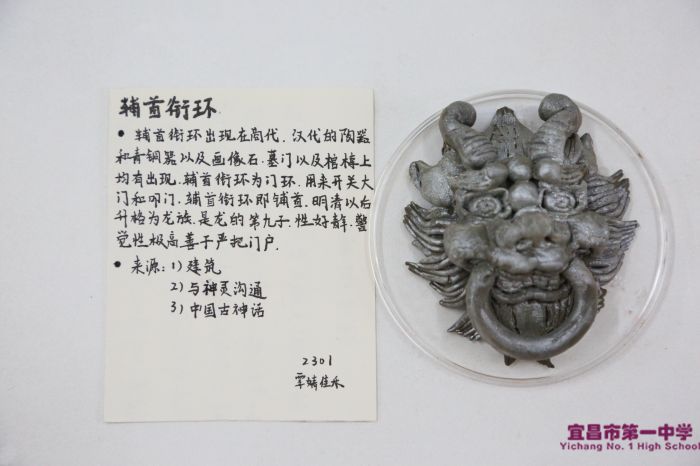 辅首衔环
• 辅首衔环出现在商代.汉代的陶器
和青铜器以及画像石.墓门以及棺椁上
均有出现.辅首衔环为门环.用来开关大
门和叩门.辅首衔环即铺首.明清以后
升格为龙族.是龙的第九子.性好静.警
觉性极高善于严把门户.
• 来源:1)建筑
2)与神灵沟通
3)中国古神话
2301
覃婧佳禾
宜昌市第一中学
Yichang No. 1 High School